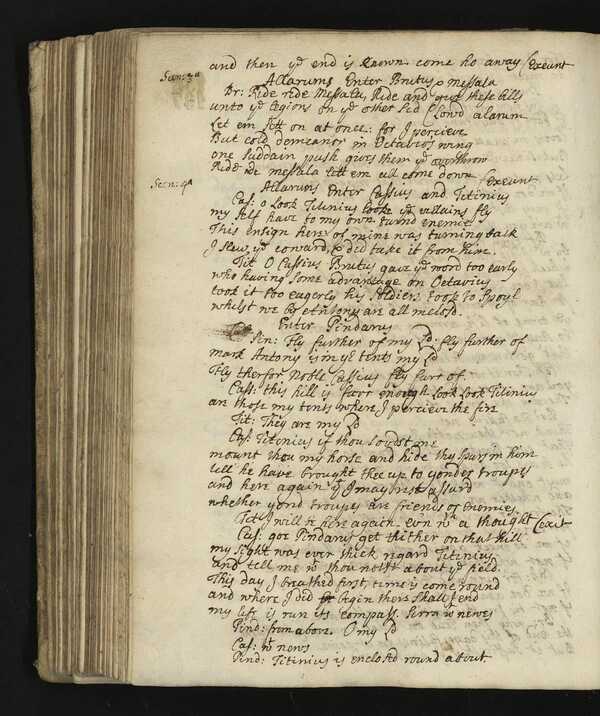 and then ye end is known. come ho away (Exeunt
Scen: 3a Allarums Enter Brutus & messala
Br: Ride ride Messala, Ride and give these bills
unto ye legions on ye other sid (Lowd alarum
Let em sett on at once: for I percieve
But cold demeanor in Octavios wing
one suddain push gives them ye overthrow
Ride ride messala lett em all come down (Exeunt
Scen: 4a Allarums Enter Cassius and Titinius
Cas: o Look Titinius looke ye villains fly
my self have to my own turnd enemie
This ensign here of mine was turning back
I slew ye coward, & did take it from him.
Tit: O Cassius Brutus gave ye word too early
who having some advantage on Octavius
took it too eagerly his soldiers took to spoyl
whilst we by Antony are all inclosd.
Enter Pindarus
Pin: Fly further of my Ld: fly further of
mark Antony is in yr tents my Ld
Fly therfor Noble Cassius fly farr of
Cass: this hill is farr enough Look Look Titinius
are those my tents where I percieve the fire
Tit: They are my Ld
Cas: Titinius if thou lovdst me
mount thou my horse and hide thy spurs in him
till he have brought thee up to yonder troupes
and here again yt I may rest assurd
whether yond troupes are friends or Enemies.
Tit: I will be here again evn wth a thought (exit
Cas: goe Pindarus get thither on that hill
my sight was ever thick regard Titinius
and tell me wt thou notst about ye field.
This day I breathed first, time is come round
and where I did begin there shall I end
my life is run its compass. sirra wt newes
Pind: from above. O my Ld
Cas: wt news
Pind: Titinius is enclosd round about